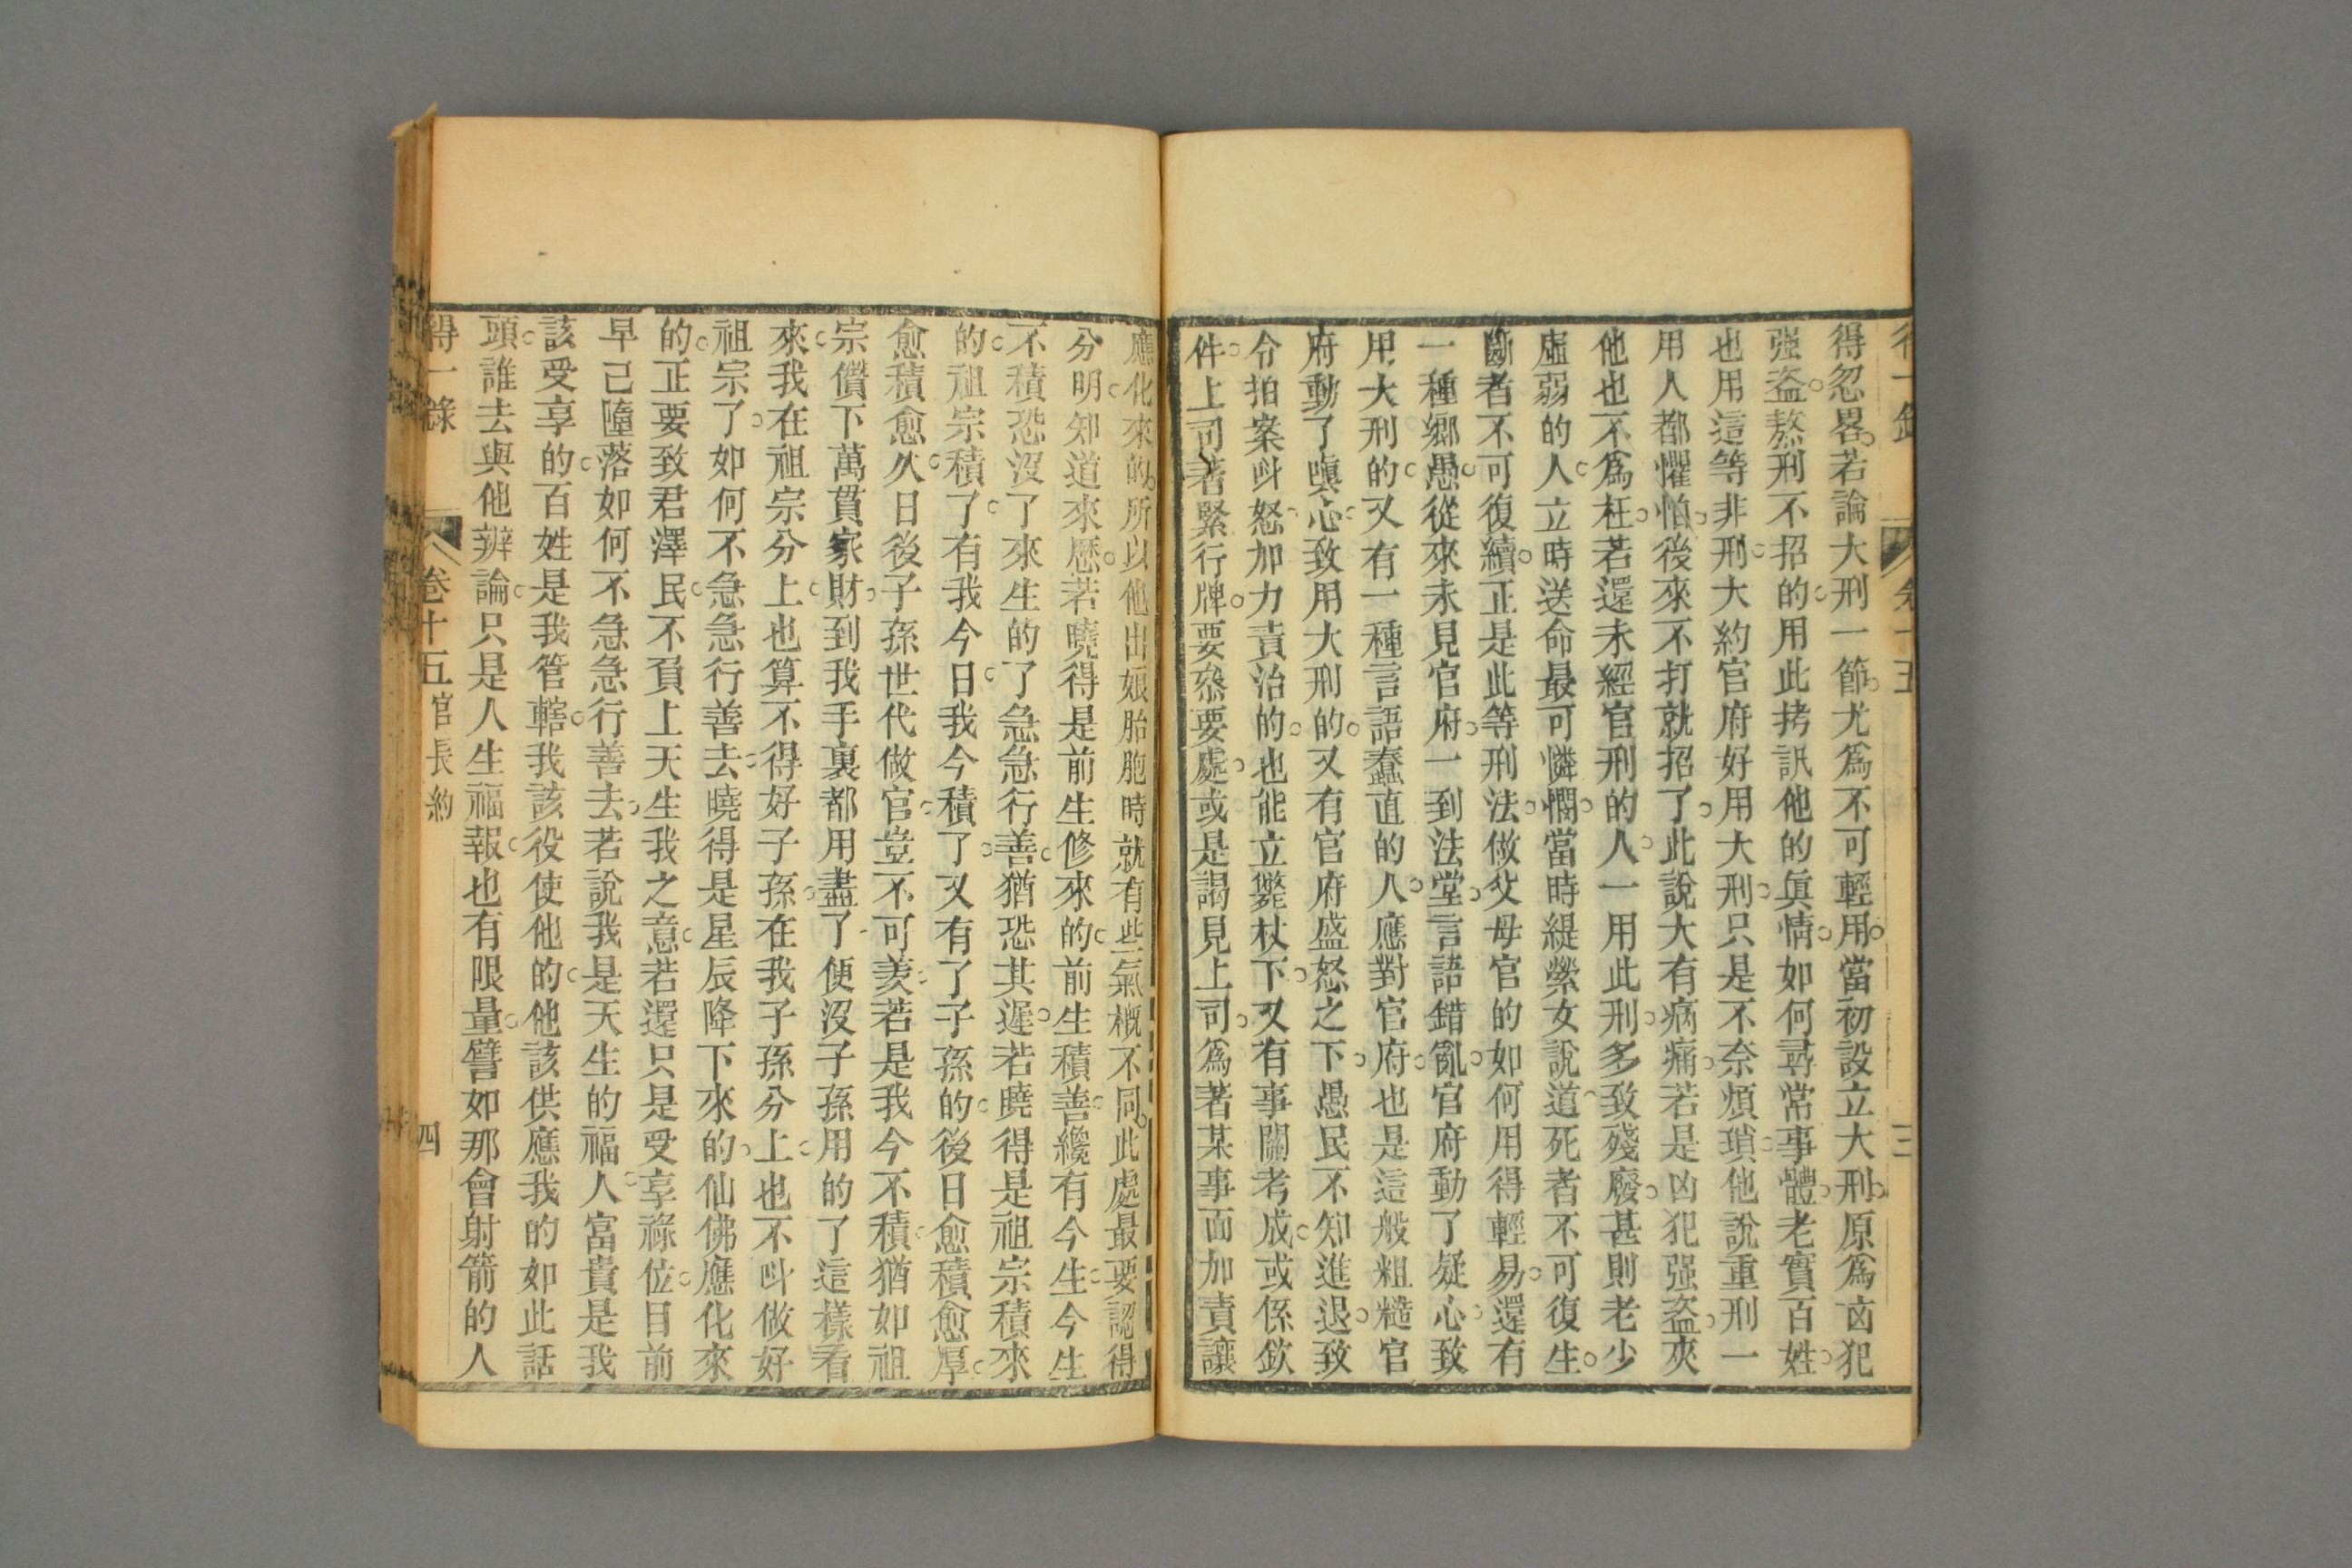 得忽畧。若論大刑一節。尤爲不可輕用。當初設立大刑。原爲囟犯
强盗。熬刑不招的。用此拷訊他的眞情。如何尋常事體。老實百姓。
也用這等非刑。大約官府好用大刑。只是不奈煩瑣。他說重刑一
用人都懼怕。後來不打就招了。此說大有病痛。若是凶犯强盗。夾
他也不爲枉。若還未經官刑的人。一用此刑。多致殘廢。甚則老少
虛弱的人。立時送命。最可憐憫。當時緹縈女說道。死者不可復生。
斷者不可復續。正是此等刑法。做父母官的如何用得輕易。還有
一種鄉愚。從來未見官府。一到法堂。言語錯亂。官府動了疑心。致
用大刑的。又有一種言語蠢直的人。應對官府。也是這般粗糙。官
府動了嗔心。致用大刑的。又有官府盛怒之下。愚民不知進退。致
令拍案呌怒。加力責治的。也能立斃杖下。又有事關考成。或係欽
件。上司著緊行牌。要叅要處。或是謁見上司。爲著某事面加責讓
應化來的。所以他出娘胎胞時就有些氣概不同。此處最要認得
分明。知道來歷。若曉得是前生修來的。前生積善。纔有今生。今生
不積。恐沒了來生的了。急急行善。猶恐其遲。若曉得是祖宗積來
的。祖宗積了。有我今日。我今積了。又有了子孫的。後日愈積愈厚。
愈積愈久。日後子孫世代做官。豈不可羡。若是我今不積。猶如祖
宗儹下萬貫家財。到我手裏都用盡了。便沒子孫用的了。這樣看
來。我在祖宗分上。也算不得好子孫。在我子孫分上。也不呌做好
祖宗了。如何不急急行善去。曉得是星辰降下來的。仙佛應化來
的。正要致君澤民。不負上天生我之意。若還只是受享祿位。目前
早已墮落。如何不急急行善去。若說我是天生的福人。富貴是我
該受享的。百姓是我管轄。我該役使他的。他該供應我的。如此話
頭。誰去與他辨論。只是人生福報。也有限量。譬如那會射箭的人
得一錄
卷十五 官長約
四